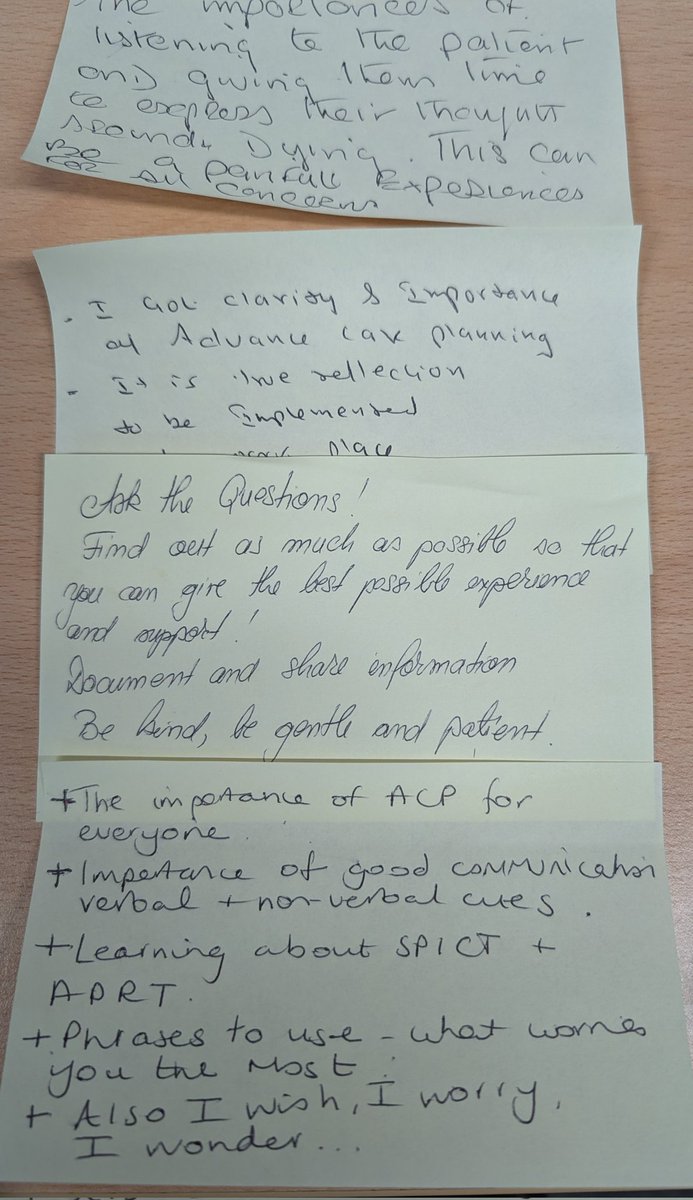 The importances of
listening to the patient
and giving them time
to express their thought
around Dying. This can
be a painfull Experiences
concerns
. I Got clarity & Importance
of Advance care planning
- It is the reflection
to be Implemented
work place
Ask the Questions!
Find out as much as possible so that
you can give the best possible experience
and support!
Document and share information
Be kind, be gentle and patient.
+ The importance of ACP for
everyone.
+ Importance of good communication
verbal + non-verbal cues.
+ Learning about SPICT +
ADRT.
+ Phrases to use - what worries
you the most.
+ Also I wish, I worry,
I wonder...